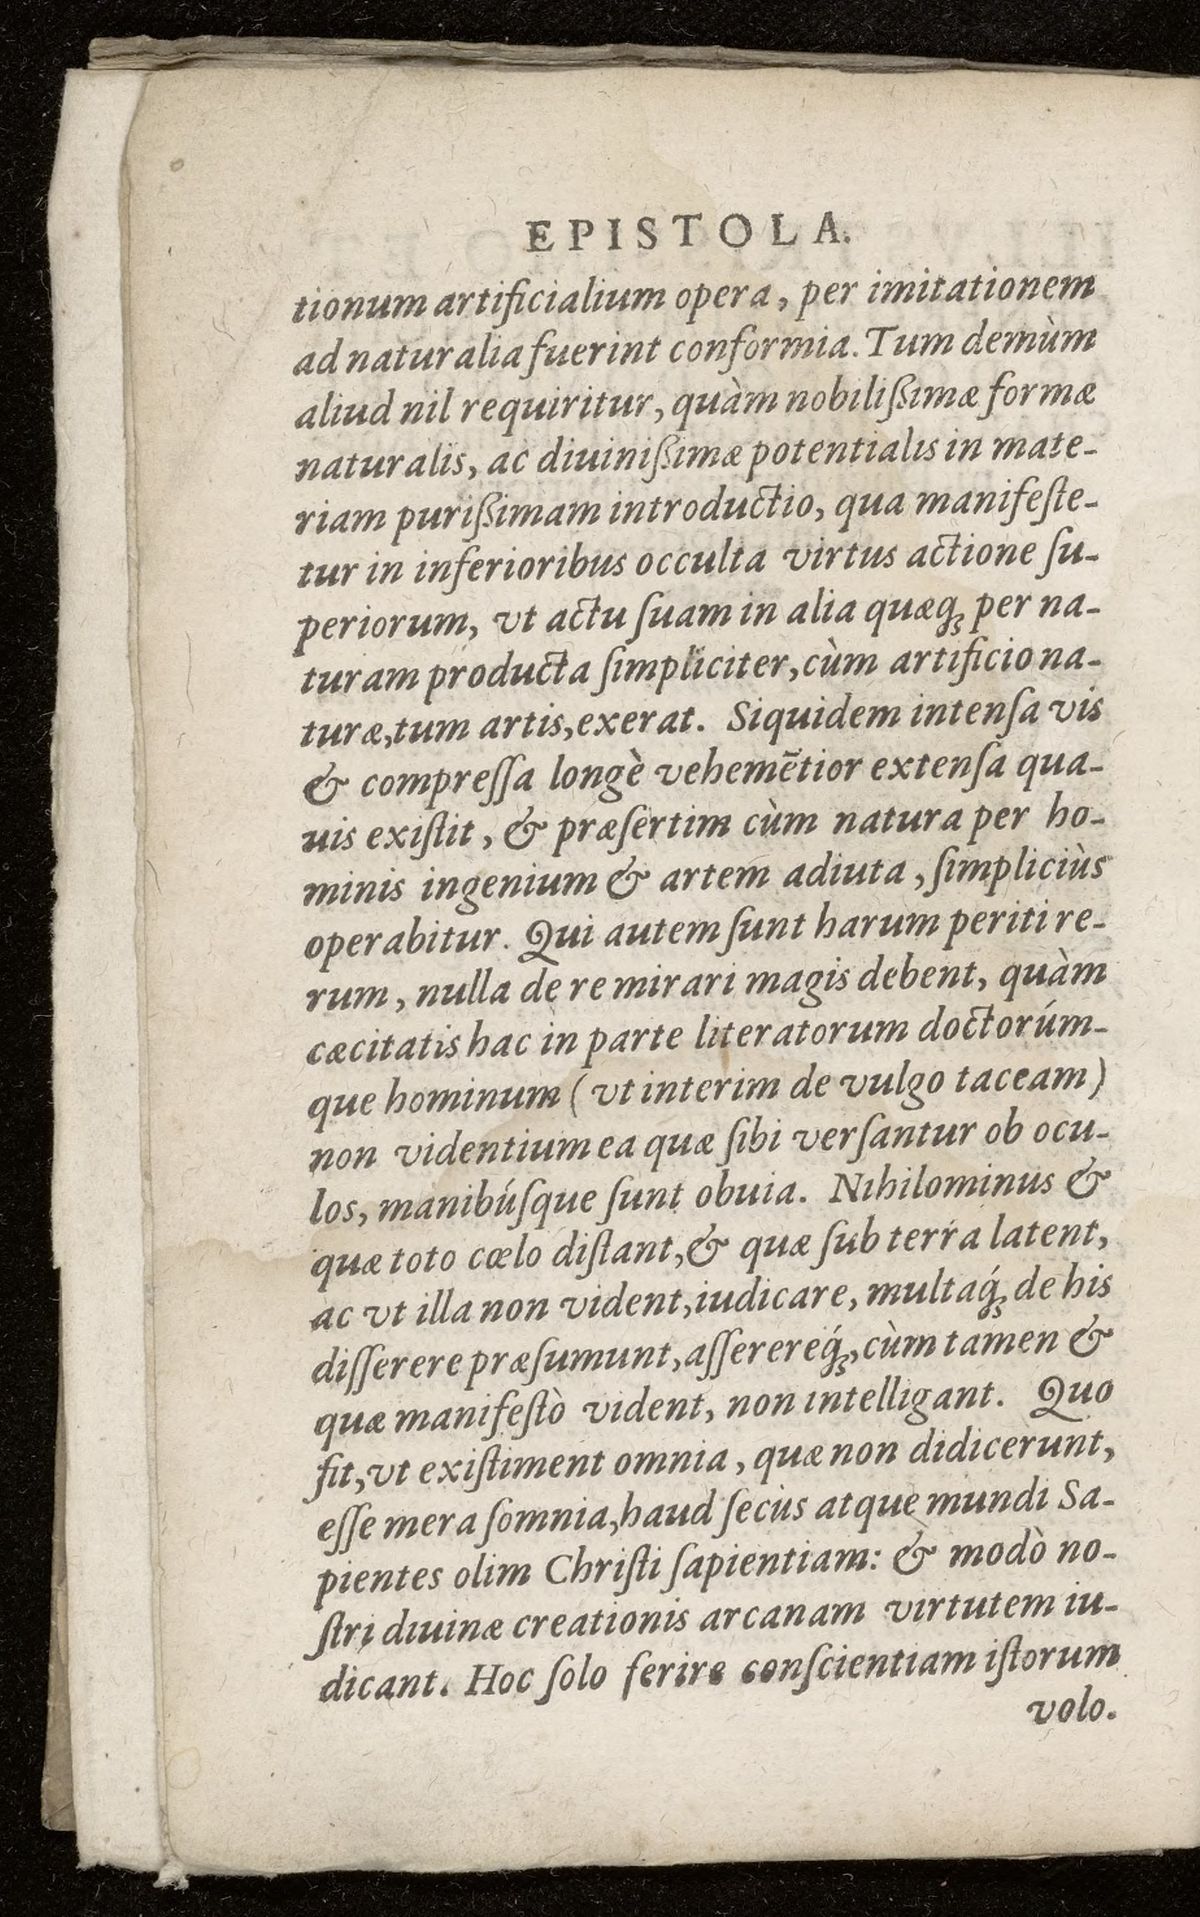 EPISTOLA.
tionum artificialium opera, per imitationem
ad naturalia fuerint conformia. Tum demùm
aliud nil requiritur, quàm nobilißimæ formæ
naturalis, ac diuinißimæ potentialis in mate-
riam purißimam introductio, qua manifeſte-
tur in inferioribus occulta virtus actione ſu-
periorum, vt actu ſuam in alia quæq́; per na-
turam producta ſimpliciter, cùm artificio na-
turæ, tum artis, exerat. Siquidem intenſa vis
& compreſſa longè vehemẽtior extenſa qua-
uis exiſtit, & præſertim cùm natura per ho-
minis ingenium & artem adiuta, ſimpliciùs
operabitur. Qui autem ſunt harum periti re-
rum, nulla de re mirari magis debent, quàm
cæcitatis hac in parte literatorum doctorúm-
que hominum (vt interim de vulgo taceam)
non videntium ea quæ ſibi verſantur ob ocu-
los, manibúſque ſunt obuia. Nihilominus &
quæ toto cœlo diſtant, & quæ ſub terra latent,
ac vt illa non vident, iudicare, multaq́; de his
diſſerere præſumunt, aſſerereq́;, cùm tamen &
quæ manifeſtò vident, non intelligant. Quo
fit, vt exiſtiment omnia, quæ non didicerunt,
eſſe mera ſomnia, haud ſecùs atque mundi Sa-
pientes olim Chriſti ſapientiam: & modò no-
ſtri diuinæ creationis arcanam virtutem iu-
dicant. Hoc ſolo ferire conſcientiam iſtorum
volo.